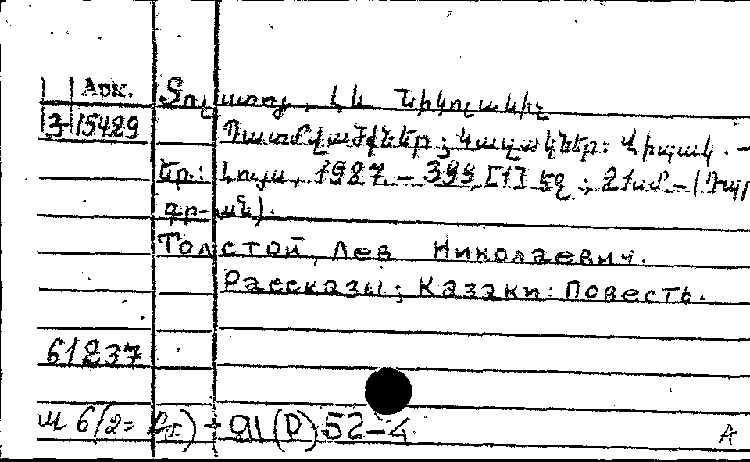 Арк.
Տոլստոյ, Լև Նիկոլաևիչ
3-15429
Պատմվածքներ; Կազակներ: Վիպակ. –
Եր.: Լույս, 1987. – 399, [1] էջ ; 21սմ – (Դպր
գր-ան).
Толстой, Лев Николаевич.
Рассказы; Казаки: Повесть.
61237
и 6(2=
ЯI(Р)52-4
A